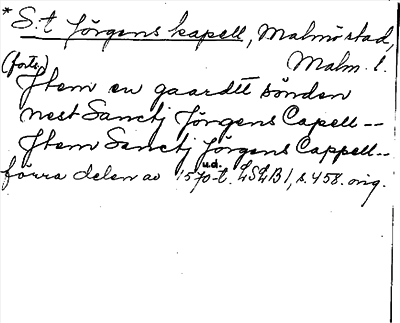 * S:t Jörgens kapell, Malmö stad,
Malm. l.
(forts.)
Jtem en gaardtt sönden
nest Sanctj Jörgens Capell --
Jtem Sanctj Jörgens Cappell --
u.d.
förra delen av 1570-t. LSLB 1, s. 458. orig.